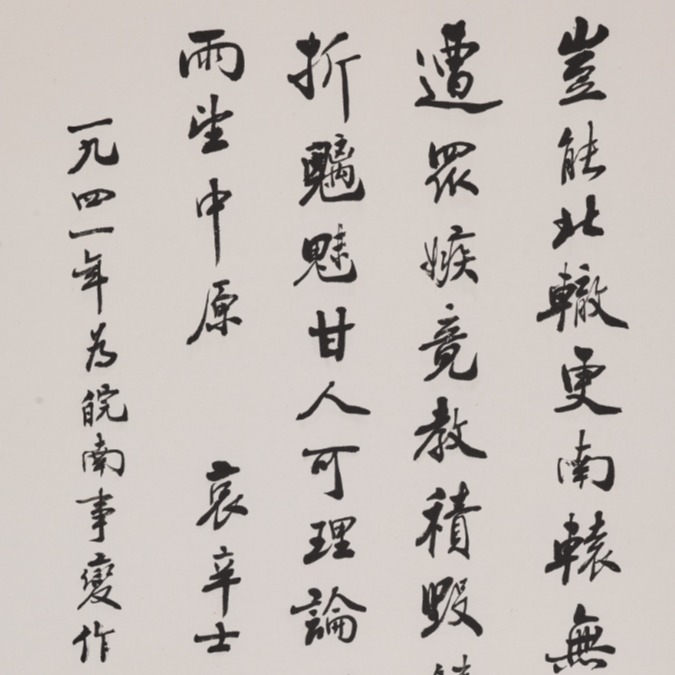 豈能北轍更南轅無
遭眾嫉竟教積毀
折魑魅甘人可理論
雨望中原 哀辛士
一九四一年为皖南事變作